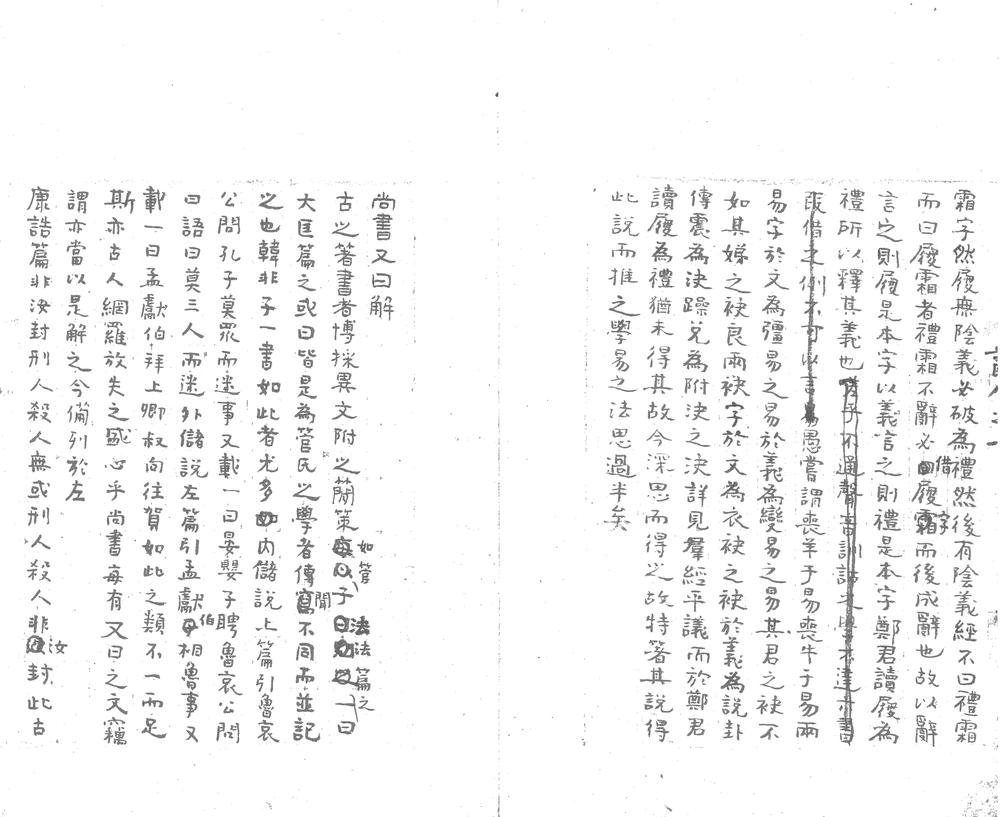 霜字然履無陰義必破為禮然後有陰義經不曰禮霜
而曰履霜者禮霜不辭必借履字而後成辭也故以辭
言之則履是本字以義言之則禮是本字鄭君讀履為
禮所以釋其義也不通聲音訓詁之學不達
假借之例不可以言易愚嘗謂喪羊于易喪牛于易兩
易字於文為彊易之易於義為變易之易其君之袂不
如其娣之袂良兩袂字於文為衣袂之袂於義為說卦
傳震為決躁兌為附決之決詳見羣經平議而於鄭君
讀履為禮猶未得其故今深思而得之故特箸其說得
此說而推之學易之法思過半矣
尚書又曰解
古之著書者博採異文附之簡策如管子法法篇之一曰
大匡篇之或曰皆是為管氏之學者傳聞不同而並記
之也韓非子一書如此者尤多內儲說上篇引魯哀
公問孔子莫眾而迷事又載一曰晏嬰子聘魯哀公問
曰語曰莫三人而迷外儲說左篇引孟獻伯相魯事又
載一曰孟獻伯拜上卿叔向往賀如此之類不一而足
斯亦古人網羅放失之盛心乎尚書每有又曰之文竊
謂亦當以是解之今備列於左
康誥篇非汝封刑人殺人無或刑人殺人非汝封此古